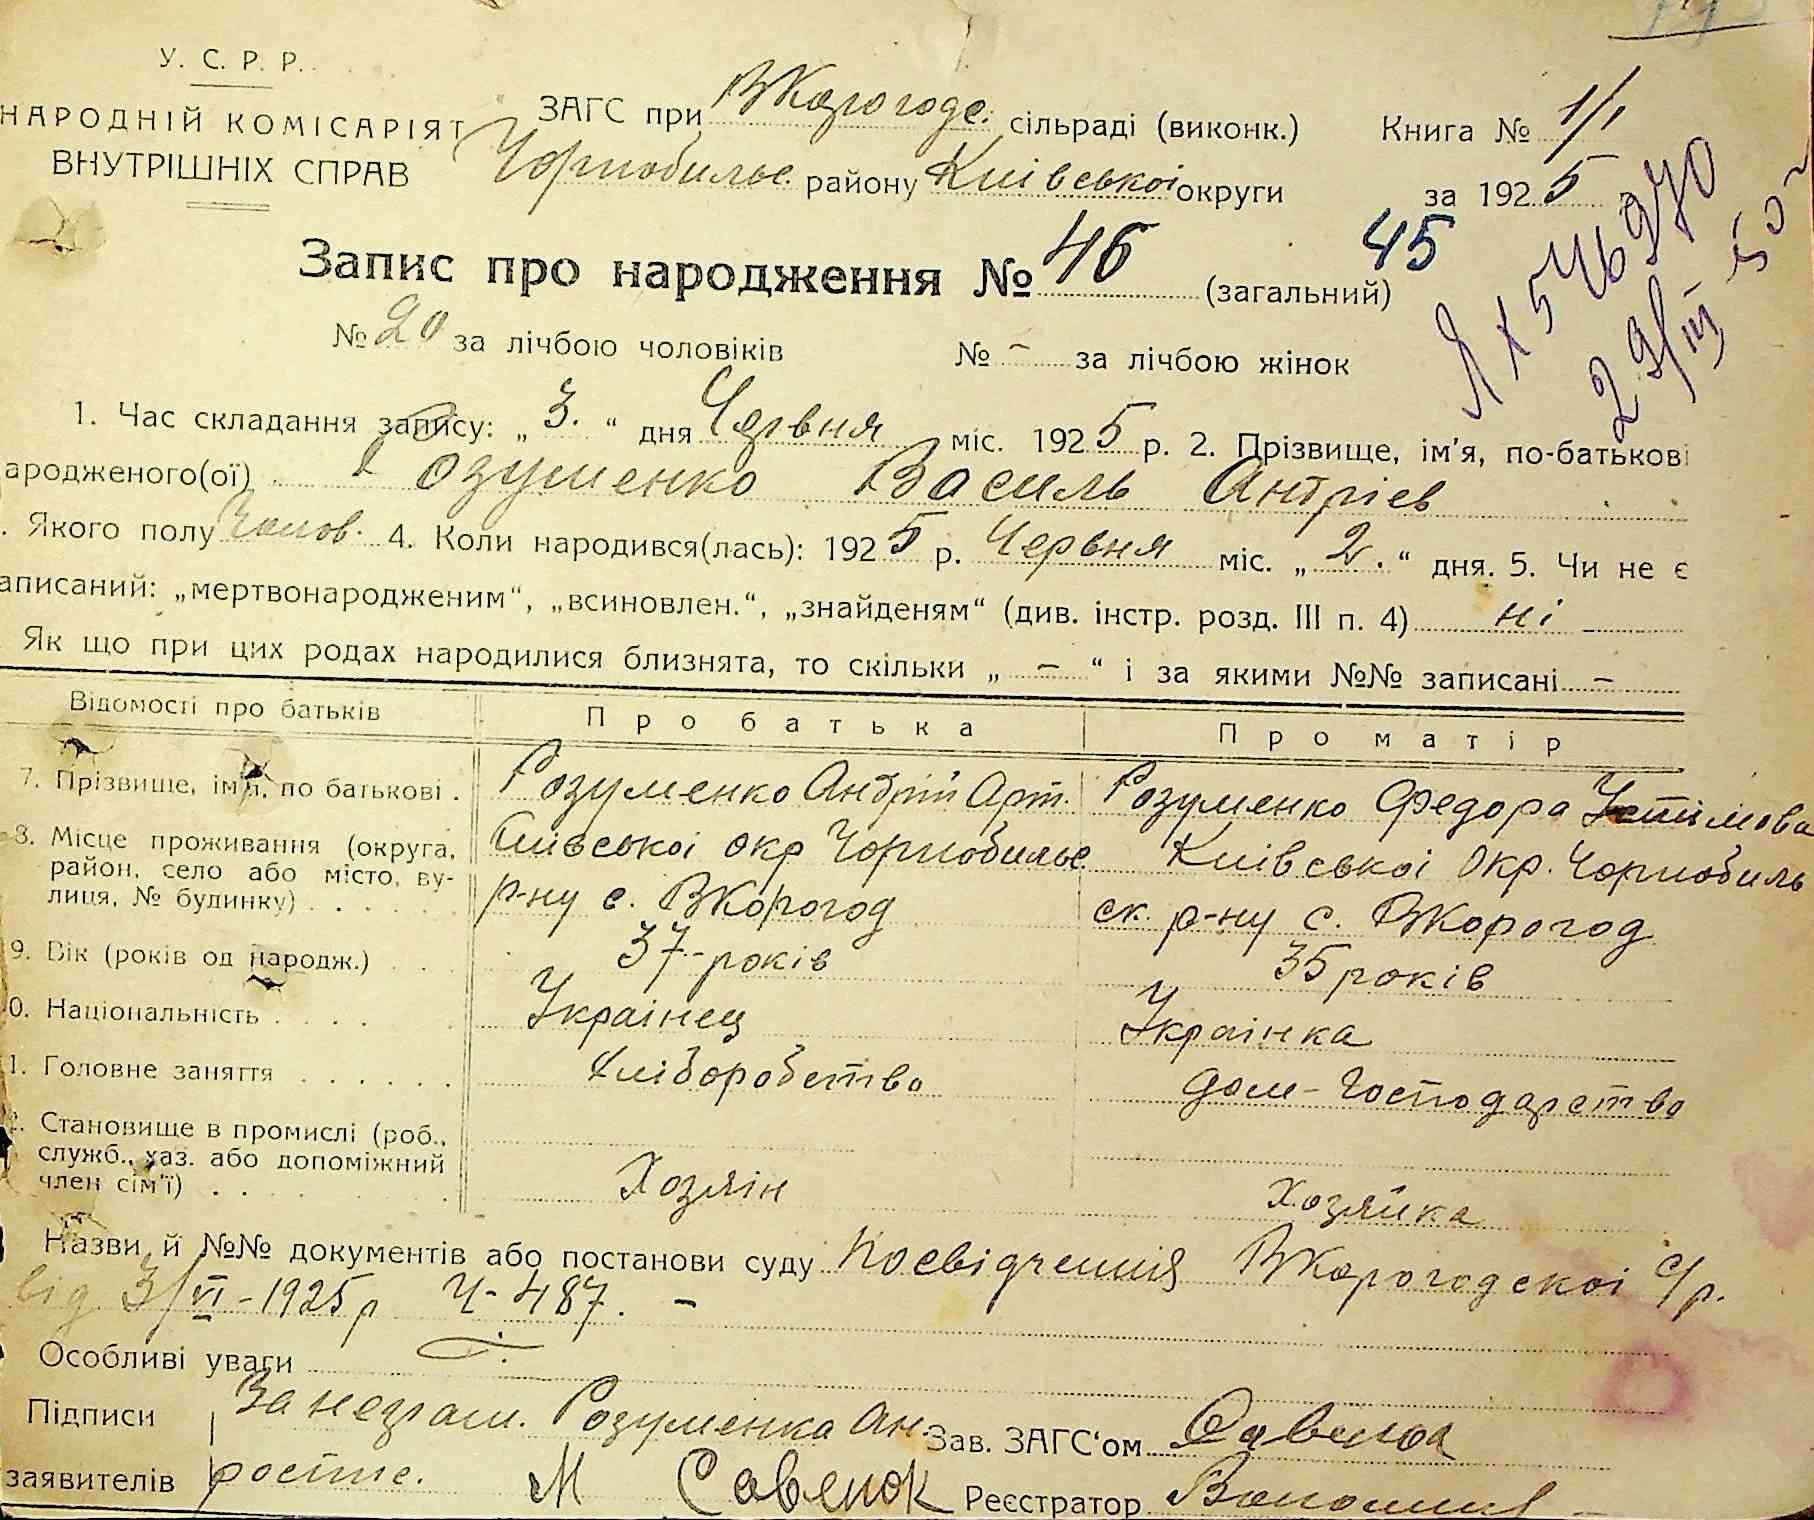 У. С. Р. Р.
НАРОДНІЙ КОМІСАРІЯТ
ВНУТРІШНІХ СПРАВ
ЗАГС при ВКорогодс. сільраді (виконк.)
Чорнобильс. району Київської округи
Книга № 1/1
за 1925
Запис про народження № 46 (загальний)
45
ЯХ 546970
29/III 50 г
№ 20 за лічбою чоловіків № – за лічбою жінок
1. Час складання запису: „ 3. “ дня Червня міс. 1925 р. 2. Прізвище, ім'я, по-батькові
ародженого(ої) Розуменко Василь Антріев
. Якого полу Чолов. 4. Коли народився(лась): 1925 р. Червня міс. „ 2. “ дня. 5. Чи не є
аписаний: „мертвонародженим“, „всиновлен.“, „знайденям“ (див. інстр. розд. III п. 4) ні
Як що при цих родах народилися близнята, то скільки „ – “ і за якими №№ записані –
Відомості про батьків Про батька Про матір
7. Прізвище, ім'я, по батькові . Розуменко Андрій Арт. Розуменко Федора Устімова
8. Місце проживання (округа, Київської окр Чорнобильс Київської Окр. Чорнобиль
район, село або місто, ву-
лиця, № будинку) . р-ну с. ВКорогод ск. р-ну с. ВКорогод
9. Вік (років од народж.) 37-років 35 років
0. Національність Українец Українка
1. Головне заняття Хліборобство дом-Господарство
2. Становище в промислі (роб.,
служб., хаз. або допоміжний
член сім'ї) Хозяїн Хозяйка
Назви й №№ документів або постанови суду Посвідчення ВКорогодскої с/р.
від 3/VI-1925р Ч-487. –
Особливі уваги
Підписи За неграм. Розуменка Ан. Зав. ЗАГС'ом Савенок
заявителів розпис. М Савенок Реєстратор